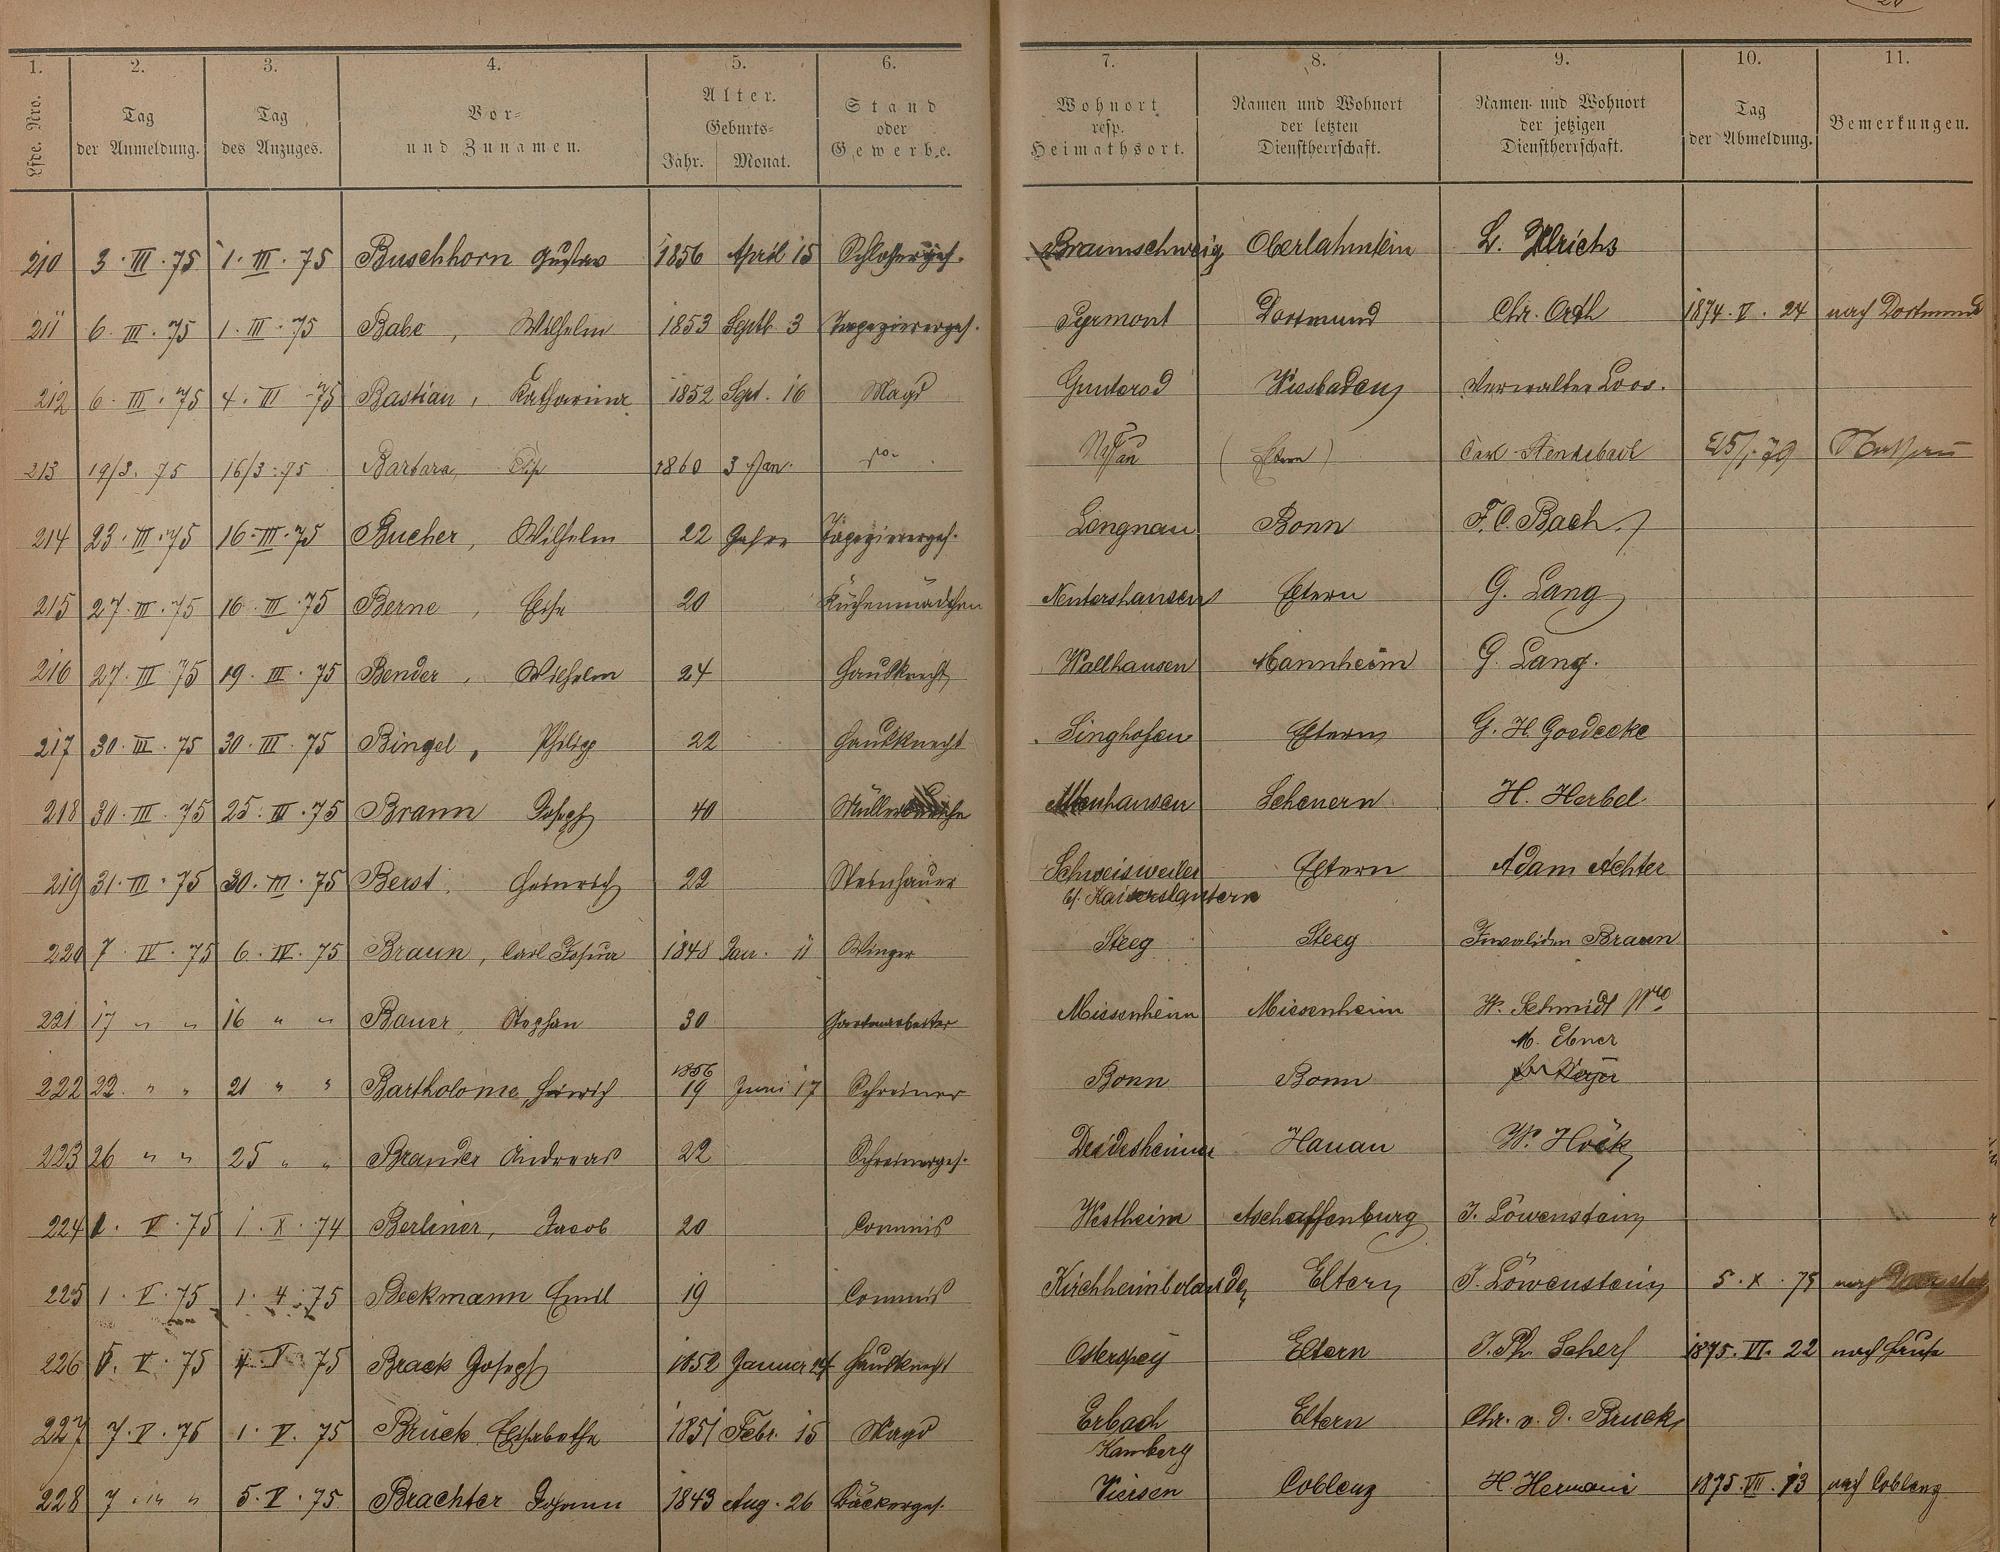 1. 2. 3. 4. 5. 6. 7. 8. 9. 10. 11.
Lfde. Nro. Tag der Anmeldung. Tag des Anzuges. Vor- und Zunamen. Alter. Geburts- Jahr. Monat. Stand oder Gewerbe. Wohnort resp. Heimathsort. Namen und Wohnort der letzten Dienstherrschaft. Namen und Wohnort der jetzigen Dienstherrschaft. Tag der Abmeldung. Bemerkungen.
210 3. III. 75 1. III. 75 Buschhorn Gustav 1856 April 15 Schlosserges. Braunschweig Oberlahnstein L. Ulrichs
211 6. III. 75 1. III. 75 Babe, Wilhelm 1853 Septb. 3 Tapeziererges. Pyrmont Dortmund Chr. Orth 1874. V. 24 nach Dortmund
212 6. III. 75 4. III 75 Bastian, Katharina 1852 Sept. 16 Magd Wiesbaden Verwalter Loos.
213 19/3. 75 16/3. 75 Barbara, 1860 3 Jan. do. Nassau (Eltern) Carl 25/1. 79 Nassau
214 23. III. 75 16. III. 75 Bucher, Wilhelm 22 Jahre Tapeziererges. Lengnau Bonn F. C. Bach
215 27. III. 75 16. III. 75 Berne, Elise 20 Küchenmädchen Nentershausen Eltern G. Lang
216 27. III 75 19. III. 75 Bender, Wilhelm 24 Hausknecht Wallhausen Mannheim G. Lang.
217 30. III. 75 30. III. 75 Bingel, Philipp 22 Hausknecht Singhofen Eltern G. H. Goedecke
218 30. III. 75 25. III. 75 Braun Joseph 40 Müller Scheuern H. Herbel
219 31. III. 75 30. III. 75 Berst, Heinrich 22 Steinhauer Schweisweiler Eltern Adam Achter
b/. Kaiserslautern
220 7. IV. 75 6. IV. 75 Braun, Carl Josua 1848 Jan. 11 Winzer Steeg Steeg Invaliden Braun
221 17 " " 16 " " Bauer, Stephan 30 Gartenarbeiter Miesenheim Miesenheim W. Schmidt Wwe
M. Ebner
222 22. " " 21 " " Bartholome, Heinrich 1856 19 Juni 17 Schreiner Bonn Bonn
223 26 " " 25 " " Brander Andreas 22 Schreinerges. Deidesheim Hanau W. Höck
224 1. V. 75 1. X. 74 Berliner, Jacob 20 Commis Westheim Aschaffenburg J. Löwenstein
225 1. V. 75 1. 4. 75 Beckmann Emil 19 Commis Kirchheimbolanden Eltern J. Löwenstein 5. X. 75 nach
226 5. V. 75 4. V 75 Brack Joseph 1852 Januar 24 Hausknecht Osterspey Eltern J. Ph. Scherf 1875. VI. 22 nach Hause
227 7. V. 75 1. V. 75 Bruck Elisabetha 1851 Febr. 15 Magd Erbach Eltern Chr. v. d. Bruck
Kamberg
228 7. " " 5. V. 75 Brachter Johann 1843 Aug. 26 Bäckerges. Viersen Coblenz H. Hermani 1875. VII. 13 nach Coblenz